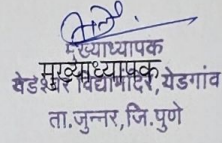 मुख्याध्यापक
मुख्याध्यापक
येडेश्वर विद्यामंदिर,येडगांव
ता.जुन्नर,जि.पुणे